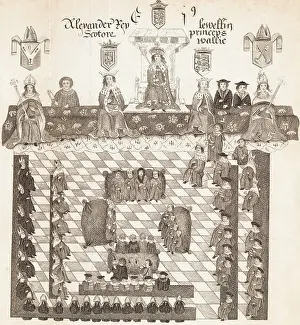 Alexander Rey
Scotore
E 9
lewellin
princeps
wallie